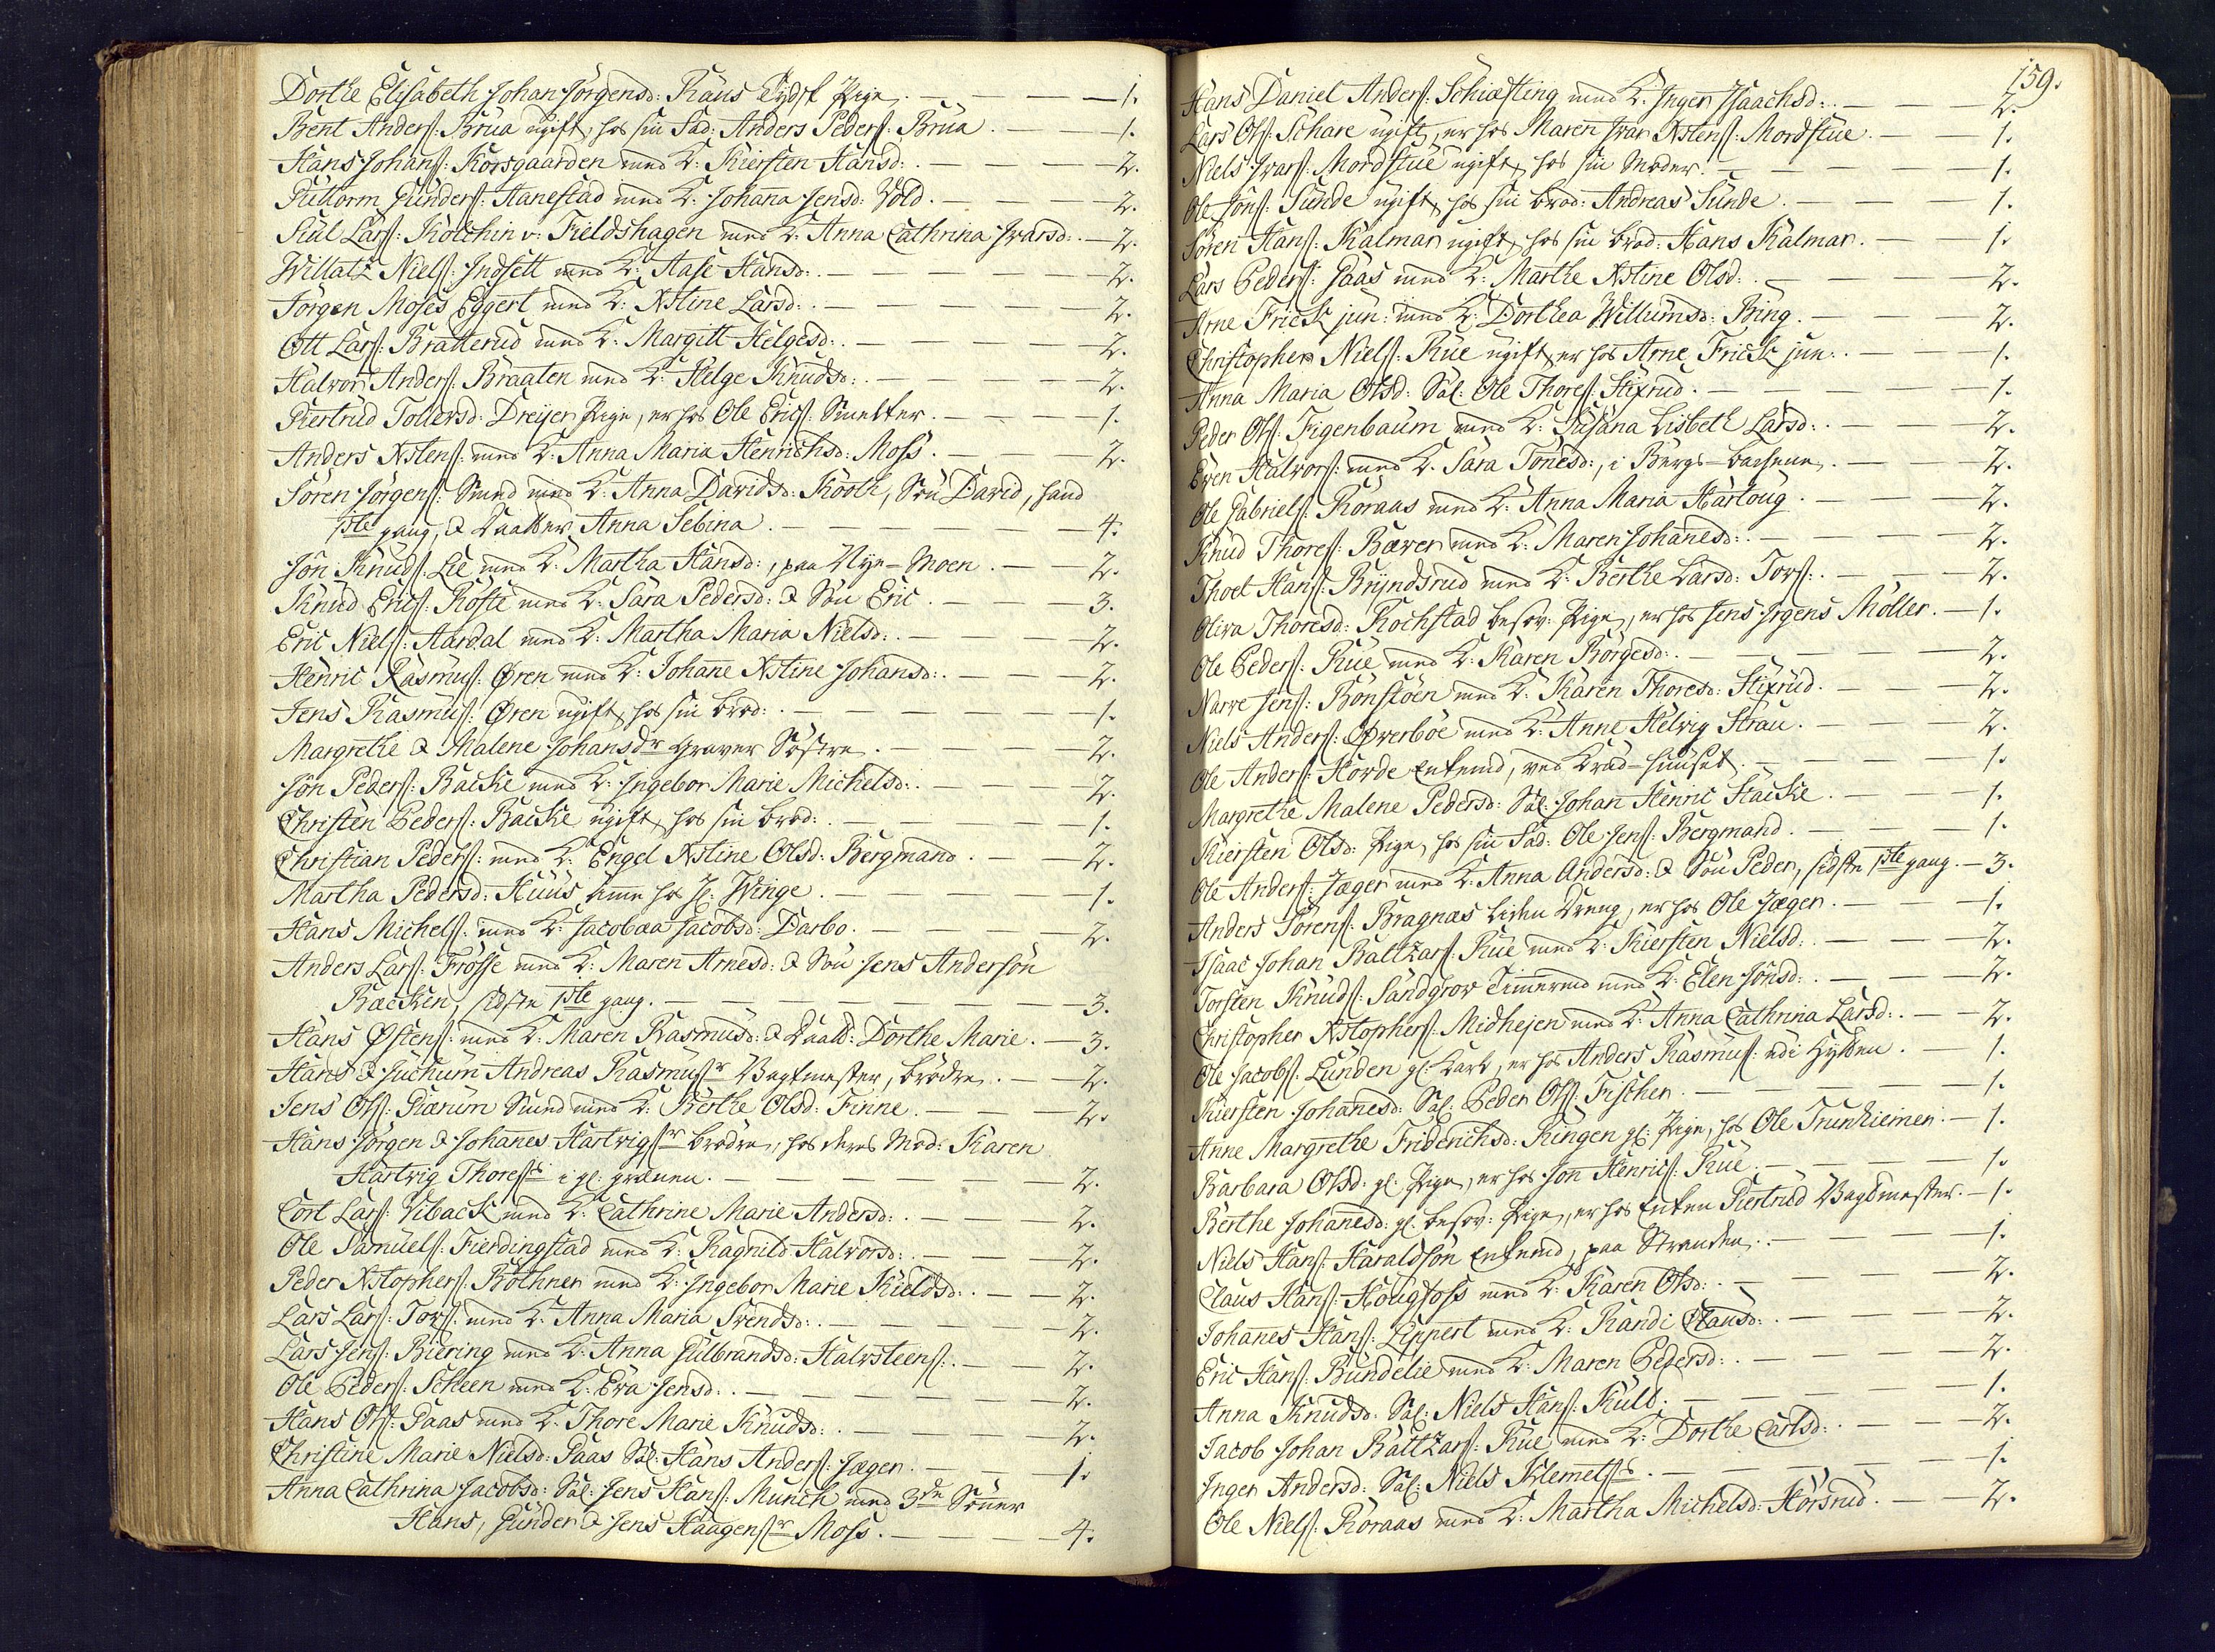 Dorthe Elisabeth Johan Jörgensd: Raus Tydsk Pige. — 1.
Bent Anders: Brua ugift, hos sin Fad: Anders Peders: Brua. — 1.
Hans Johans: Korsgaarden med K: Kiersten Hansd: — 2.
Guttorm Gunders: Hanestad med K: Johanna Jensd: Vold. — 2.
Lars: v: Fieldshagen med K: Anna Cathrina Ivarsd: — 2.
Willatz Niels: Indsett med K: Aase Hansd: — 2.
Jörgen Moses Eggert med K: Xstine Larsd: — 2.
Ott Lars: Bratterud med K: Margitt Helgesd: — 2.
Halvor Anders: Braaten med K: Helge Knudsd: — 2.
Giertrud Tollersd: Dreyer Pige, er hos Ole Erics: Smelter. — 1.
Anders Xstens: med K: Anna Maria Henrichsd: Moss. — 2.
Sören Jörgens: Smed med K: Anna Davidsd: Koch, Sön David, hand
1ste gang, & Daatter Anna Sebina. — 4.
Jon Knuds: Lie med K: Martha Hansd:, paa Nye-Moen. — 2.
Knud Erics: Koste med K: Sara Pedersd: & Sön Eric. — 3.
Eric Niels: Aardal med K: Martha Maria Nielsd: — 2.
Henric Rasmus: Øren med K: Johane Xstine Johansd: — 2.
Jens Rasmus: Øren ugift, hos sin brod: — 1.
Margrethe & Malene Johansdr Graver Söstre. — 2.
Jon Peders: Backe med K: Ingebor Marie Michelsd: — 2.
Christen Peders: Backe ugift, hos sin brod: — 1.
Christian Peders: med K: Engel Xstine Olsd: Bergmand. — 2.
Martha Pedersd: Huus hos Winge. — 1.
Hans Michels: med K: Jacobæa Jacobsd: Darbo. — 2.
Anders Lars: Frösse med K: Maren Arnesd: & Sön Jens Andersön
Bæcken, sidste 1ste gang. — 3.
Hans Østens: med K: Maren Rasmusd: & Daatt: Dorthe Marie. — 3.
Hans & Juchum Andreas Rasmussr Vagtmester, brödre. — 2.
Jens Ols: Giærum Smed med K: Berthe Olsd: Finne. — 2.
Hans Jörgen & Johanes Hartvigsr brödre, hos deres Mod: Karen
Hartvig Thoress i gl: grænen. — 2.
Cort Lars: Viback med K: Cathrine Marie Andersd: — 2.
Ole Samuels: Fierdingstad med K: Ragnild Halvorsd: — 2.
Peder Xstophers: Böthner med K: Ingebor Marie Kieldsd: — 2.
Lars Lars: Tors: med K: Anna Maria Svendsd: — 2.
Lars Jens: Biering med K: Anna Gulbrandsd: Halvsteens: — 2.
Ole Peders: Scheen med K: Eva Jensd: — 2.
Hans Ols: Gaas med K: Thore Marie Knudsd: — 2.
Christine Marie Nielsd: Gaas Sal: Hans Anders: Jæger. — 1.
Anna Cathrina Jacobsd: Sal: Jens Hans: Munch med 3de Sönner
Hans, Gunder & Jens Haagensr Moss. — 4.
159.
Hans Daniel Anders: Schiøtting med K: Inger Isaachsd: — 2.
Lars Ols: Schare ugift, er hos Maren Ivar Xstens: Mordstue. — 1.
Niels Ivars: Mordstue ugift, hos sin Moder. — 1.
Ole Jons: Sunde ugift, hos sin brod: Andreas Sunde. — 1.
Sören Hans: Kalmar ugift, hos sin brod: Hans Kalmar. — 1.
Lars Peders: Gaas med K: Marthe Xstine Olsd: — 2.
Arne Frick jun: med K: Dorthea Willumsd: Bring. — 2.
Christopher Niels: Rue ugift, er hos Arne Frick jun: — 1.
Anna Maria Olsd: Sal: Ole Thores: Stixrud. — 1.
Peder Ols: Figenbaum med K: Susana Lisbeth Larsd: — 2.
Even Halvors: med K: Sara Tonesd:, i Bergs-bachene. — 2.
Ole Gabriels: Röraas med K: Anna Maria Hartoug. — 2.
Knud Thores: Bæver med K: Maren Johanesd: — 2.
Thoel Hans: Bryndsrud med K: Berthe Larsd: Tors: — 2.
Oliva Thoresd: Rochstad besov: Pige, er hos Jens Irgens Möller. — 1.
Ole Peders: Rue med K: Karen Börgesd: — 2.
Narve Jens: Bonstöen med K: Karen Thoresd: Stixrud. — 2.
Niels Anders: Øverböe med K: Anne Helvig Strau. — 2.
Ole Anders: Horde Enkemd, ved Krud-huuset. — 1.
Margrethe Malene Pedersd: Sal: Johan Henric Hacke. — 1.
Kiersten Olsd: Pige, hos sin Fad: Ole Jens: Bergmand. — 1.
Ole Anders: Jæger med K: Anna Andersd: & Sön Peder, sidste 1ste gang. — 3.
Anders Sörens: Bragnæs liden Dreng, er hos Ole Jæger. — 1.
Isaac Johan Baltzars: Rue med K: Kiersten Nielsd: — 2.
Torsten Knuds: Sandgrov Timermd med K: Elen Jonsd: — 2.
Christopher Xstophers: Midhejen med K: Anna Cathrina Larsd: — 2.
Ole Jacobs: Lunden gl: Karl, er hos Anders Rasmus: ved Hytten. — 1.
Kiersten Johanesd: Sal: Peder Ols: Fischer. — 1.
Anne Margrethe Friderichsd: Ringen gl: Pige, hos Ole Trunhiemer. — 1.
Barbara Olsd: gl: Pige, er hos Jon Henrics: Rue. — 1.
Berthe Johanesd: gl: besov: Pige, er hos Enken Giertrud Vagtmester. — 1.
Niels Hans: Haraldsön Enkemd, paa Stranden. — 1.
Claus Hans: Hougfoss med K: Karen Olsd: — 2.
Johanes Hans: Lippert med K: Randi Clausd: — 2.
Eric Hans: Bundelie med K: Maren Pedersd: — 2.
Anna Knudsd: Sal: Niels Hans: Kult. — 1.
Jacob Johan Baltzars: Rue med K: Dorthe Carlsd: — 2.
Inger Andersd: Sal: Niels Klemets — 1.
Ole Niels: Röraas med K: Martha Michelsd: Horsrud. — 2.